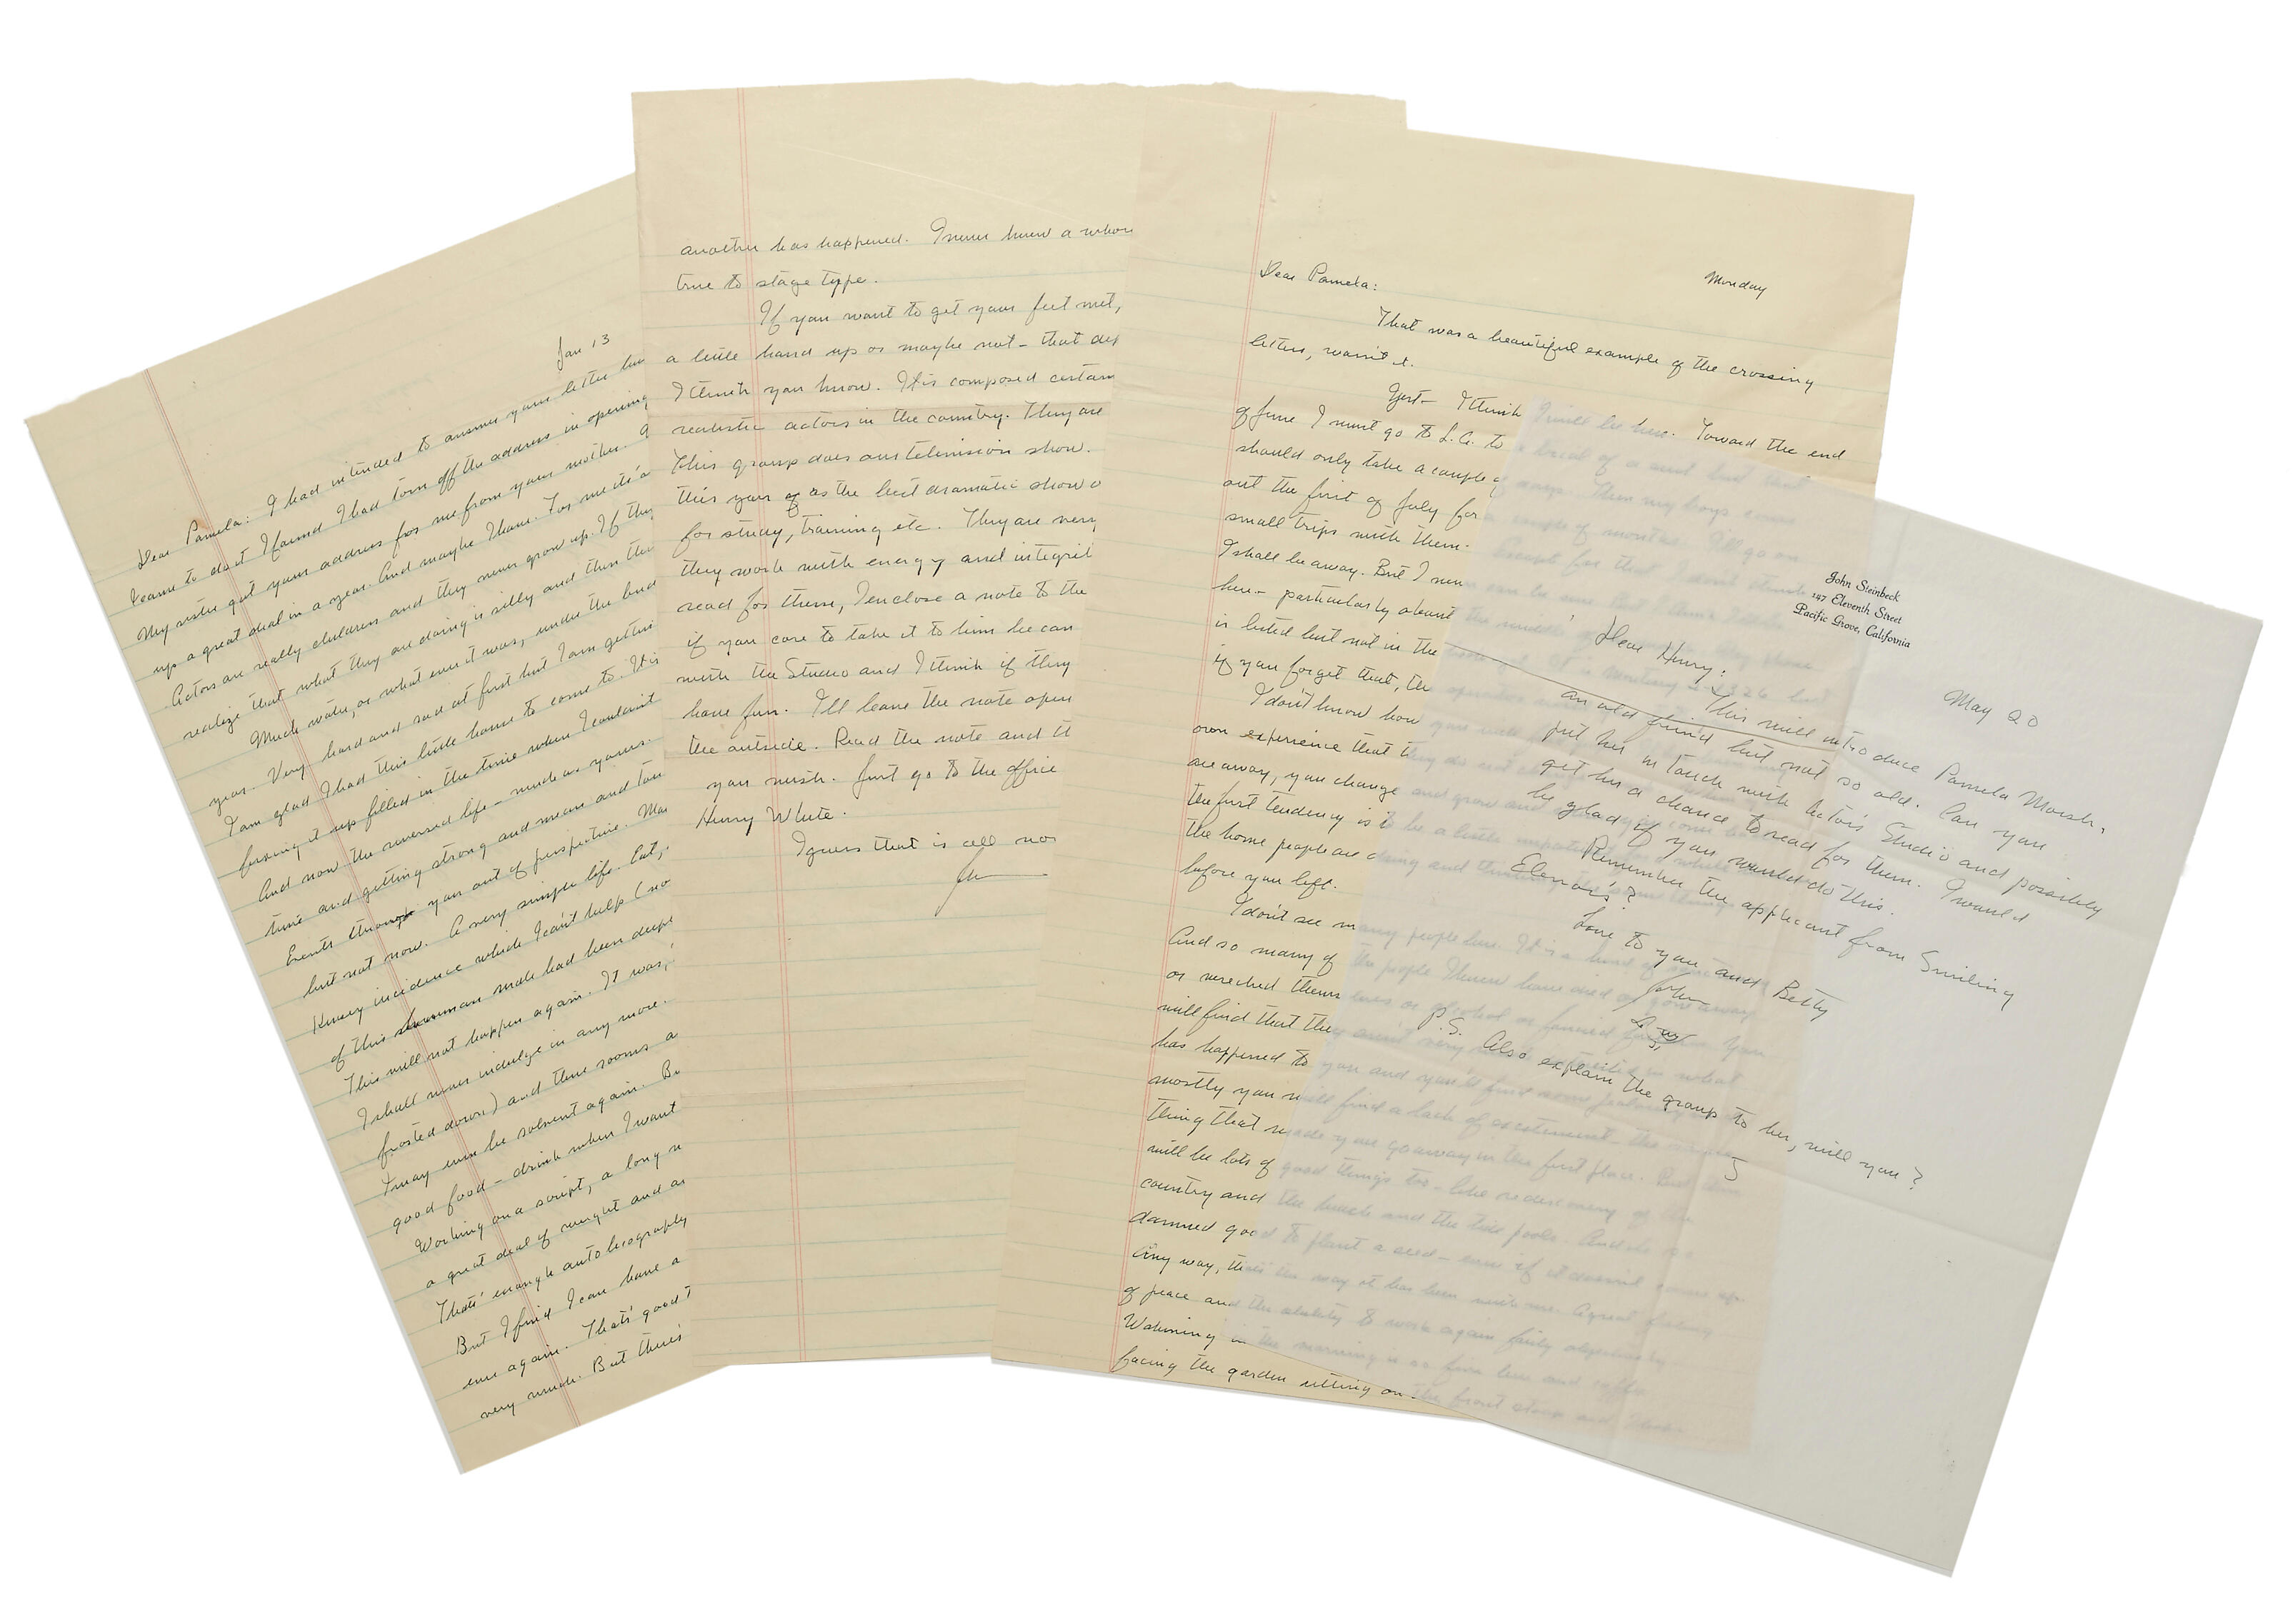 Jan 13
Dear Pamela: I had intended to answer your letter but
came to do it I found I had torn off the address in opening
My sister got your address for me from your mother.
up a great deal in a year. And maybe them. For me its a
Actors are really children and they never grow up. If they
realize that what they are doing is silly and then they
Much water, or what ever it was, under the
year. Very hard and sad at first but I am getting
I am glad I had this little house to come to. It is
fixing it up filled in the time when I couldn't
And now the reversed life - much as yours.
time and getting strong and mean and
Events you out of perspective.
but not now. A very simple life. Eat,
Kinsey incidence which I can't help (no
of this human male had been
This will not happen again. It was,
I shall never indulge in any more.
frosted down) and three rooms a
I may even be solvent again.
good food - drink when I want
Working on a script, a long
a great deal of and
Thats' enough autobiography
But I find I can have a
ever again. That's good
very much. But there's
another has happened. I never knew a
true to stage type.
If you want to get your feet wet,
a little hand up or maybe not - that
I think you know. It is composed
realistic actors in the country. They are
This group does our television show.
this year as the best dramatic show
for study, training etc. They are very
they work with energy and
read for them, I enclose a note to the
if you care to take it to him he can
with the Studio and I think if they
have fun. I'll leave the note open
the outside. Read the note and
you wish. Just go to the office
Henry White.
I guess that is all
John
Monday
Dear Pamela:
That was a beautiful example of the crossing
letter, wasn't it.
Yes - I think I will be here. Toward the end
of June I must go to L.A. to
should only take a couple of days. Then my boys come
out the first of July for a couple of months. I'll go on
small trips with them. Except for that I don't think
I shall be away. But I
here - particularly about the middle
is listed but not in the
if you forget that, the operator
I don't know how you
own experience that they do not
are away, you change and grow and
the first tendency is to be a little
the home people are doing and thinking the same things
before you left.
I don't see many people here. It is a kind of
And so many of the people I knew have died or gone away
or wrecked themselves
will find that they aren't very interested in what
has happened to you and you'll find some
mostly you will find a lack of excitement - the
thing that made you go away in the first place. But
will be lots of good things too - like rediscovery of the
country and the beach and the tide pools. And
damned good to plant a seed - even if it doesn't come up.
Any way, thats the way it has been with me. A great feeling
of peace and the ability to work again fairly objectively
Wakening in the morning is so fine here and coffee
facing the garden sitting on the front steps and
John Steinbeck
147 Eleventh Street
Pacific Grove, California
May 20
Dear Henry:
This will introduce Pamela Marsh,
an old friend but not so old. Can you
put her in touch with Actor's Studio and possibly
get her a chance to read for them. I would
be glad if you would do this.
Remember the applicant from Smiling
Elenor's?
Love to you and Betty
John
P.S. Also explain the group to her, will you?
J